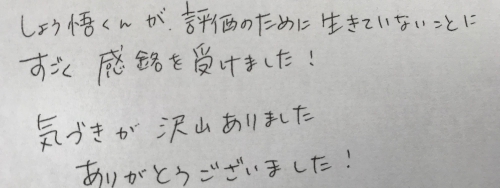 しょう悟くんが、評価のために生きていないことに
すごく 感銘を受けました!
気づきが 沢山ありました
ありがとうございました!